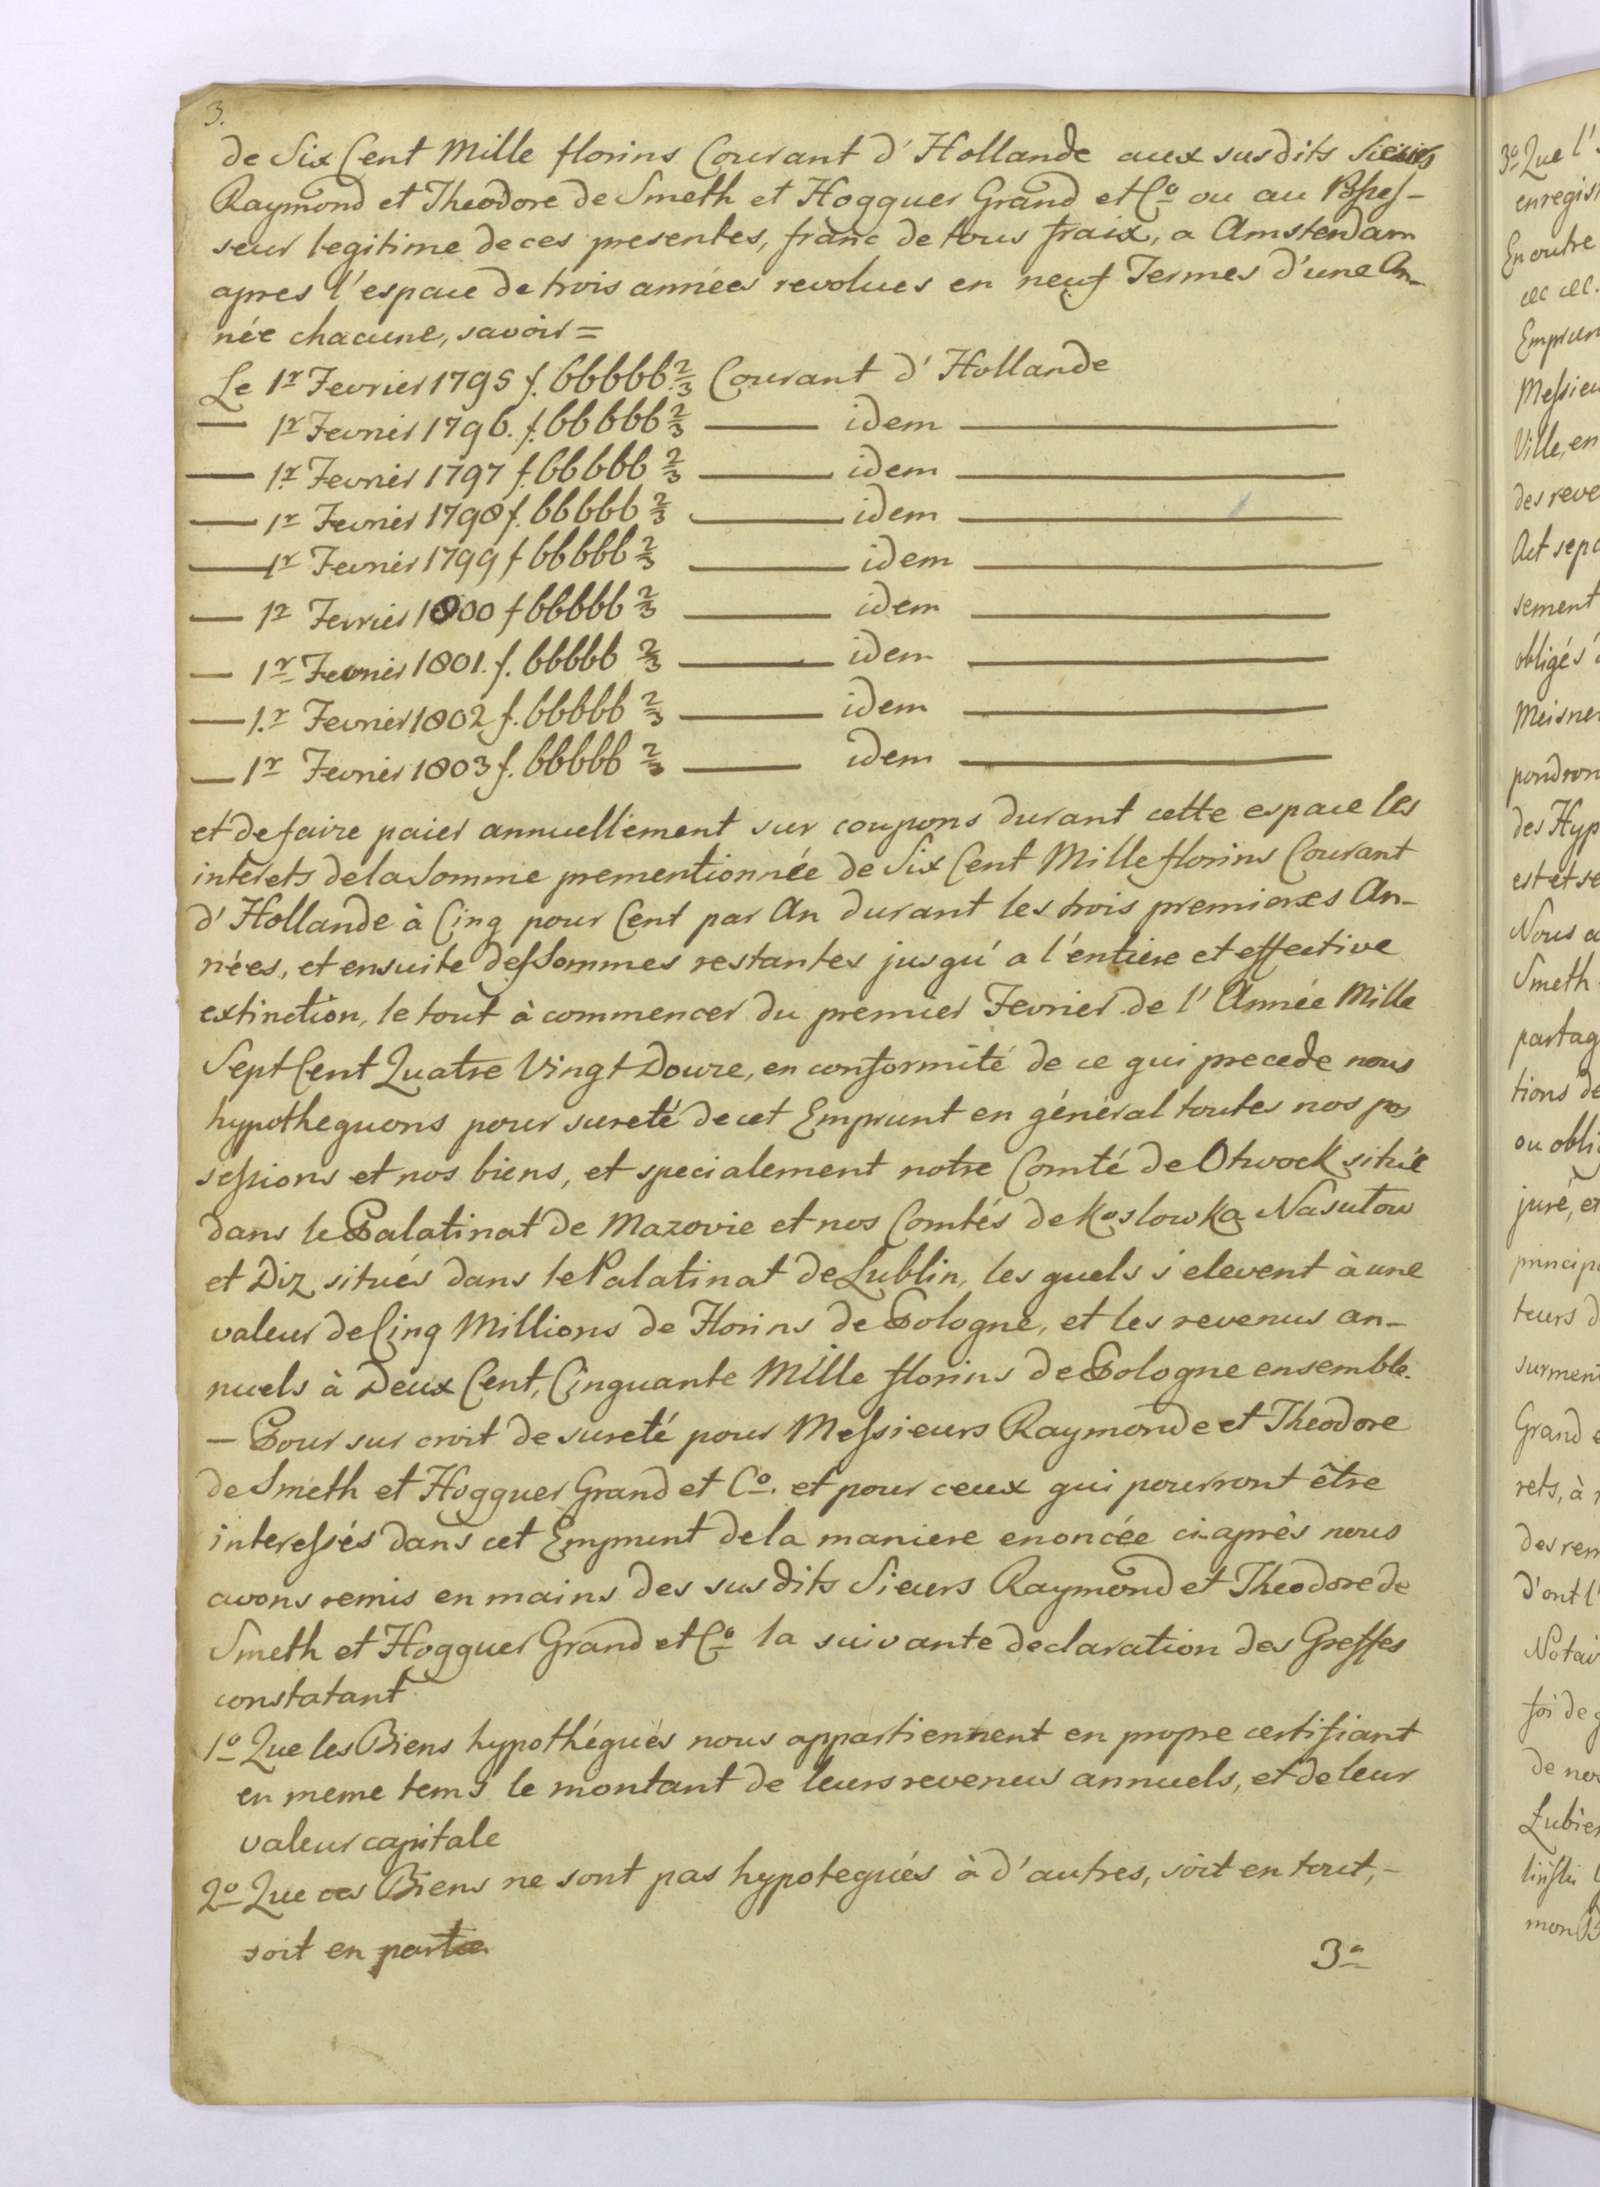 3.
de Six Cent Mille florins Courant d'Hollande aux susdits Sieurs
Raymond et Theodore de Smeth et Hogguer Grand et Co ou au Posses-
seur legitime de ces presentes, franc de tous fraix, a Amsterdam
apres l'espace de trois années revolues en neuf Termes d'une An-
née chacune, savoir =
Le 1r Fevrier 1795 f. 66666 2/3 Courant d'Hollande
— 1r Fevrier 1796. f. 66666 2/3 — idem —
— 1r Fevrier 1797 f. 66666 2/3 — idem —
— 1r Fevrier 1798 f. 66666 2/3 — idem —
— 1r Fevrier 1799 f 66666 2/3 — idem —
— 1r Fevrier 1800 f 66666 2/3 — idem —
— 1r Fevrier 1801. f. 66666 2/3 — idem —
— 1.r Fevrier 1802 f. 66666 2/3 — idem —
— 1r Fevrier 1803 f. 66666 2/3 — idem —
et de faire paier annuellement sur coupons durant cette espace les
interets de la Somme prementionnée de Six Cent Mille florins Courant
d'Hollande à Cinq pour Cent par An durant les trois premieres An-
nées, et ensuite des Sommes restantes jusqu'a l'entiere et effective
extinction, le tout à commencer du premier Fevrier de l'Année Mille
Sept Cent Quatre Vingt Douze, en conformité de ce qui precede nous
hypothequons pour sureté de cet Emprunt en général toutes nos pos
sessions et nos biens, et specialement notre Comté de Otwock situé
dans le Palatinat de Mazovie et nos Comtés de Koslowka Nasutow
et Diz situés dans le Palatinat de Lublin, les quels s'elevent à une
valeur de Cinq Millions de Florins de Pologne, et les revenus an-
nuels à Deux Cent, Cinquante Mille florins de Pologne ensemble.
— Pour sur croit de sureté pour Messieurs Raymonde et Theodore
de Smeth et Hogguer Grand et Co. et pour ceux qui pourront être
interessés dans cet Emprunt de la maniere enoncée ci-après nous
avons remis en mains des susdits Sieurs Raymond et Theodore de
Smeth et Hogguer Grand et Co la suivante declaration des Greffes
constatant
1o Que les Biens hypothéqués nous appartiennent en propre certifiant
en meme tems le montant de leurs revenus annuels, et de leur
valeur capitale
2o Que ces Biens ne sont pas hypotequés à d'autres, soit en tout, -
soit en partie
3o
3o Que l'
enregis
En outre
Emprun
Messieu
Ville, en
des reve
Act sepa
sement
obligés
Meisner
pondron
des Hyp
est et se
Nous a
Smeth
partag
tions de
ou obli
juré, et
princip
teurs d
surmen
Grand e
rets, à
des rem
d'ont l'
Notai
foi de
de no
Lubie
mon B